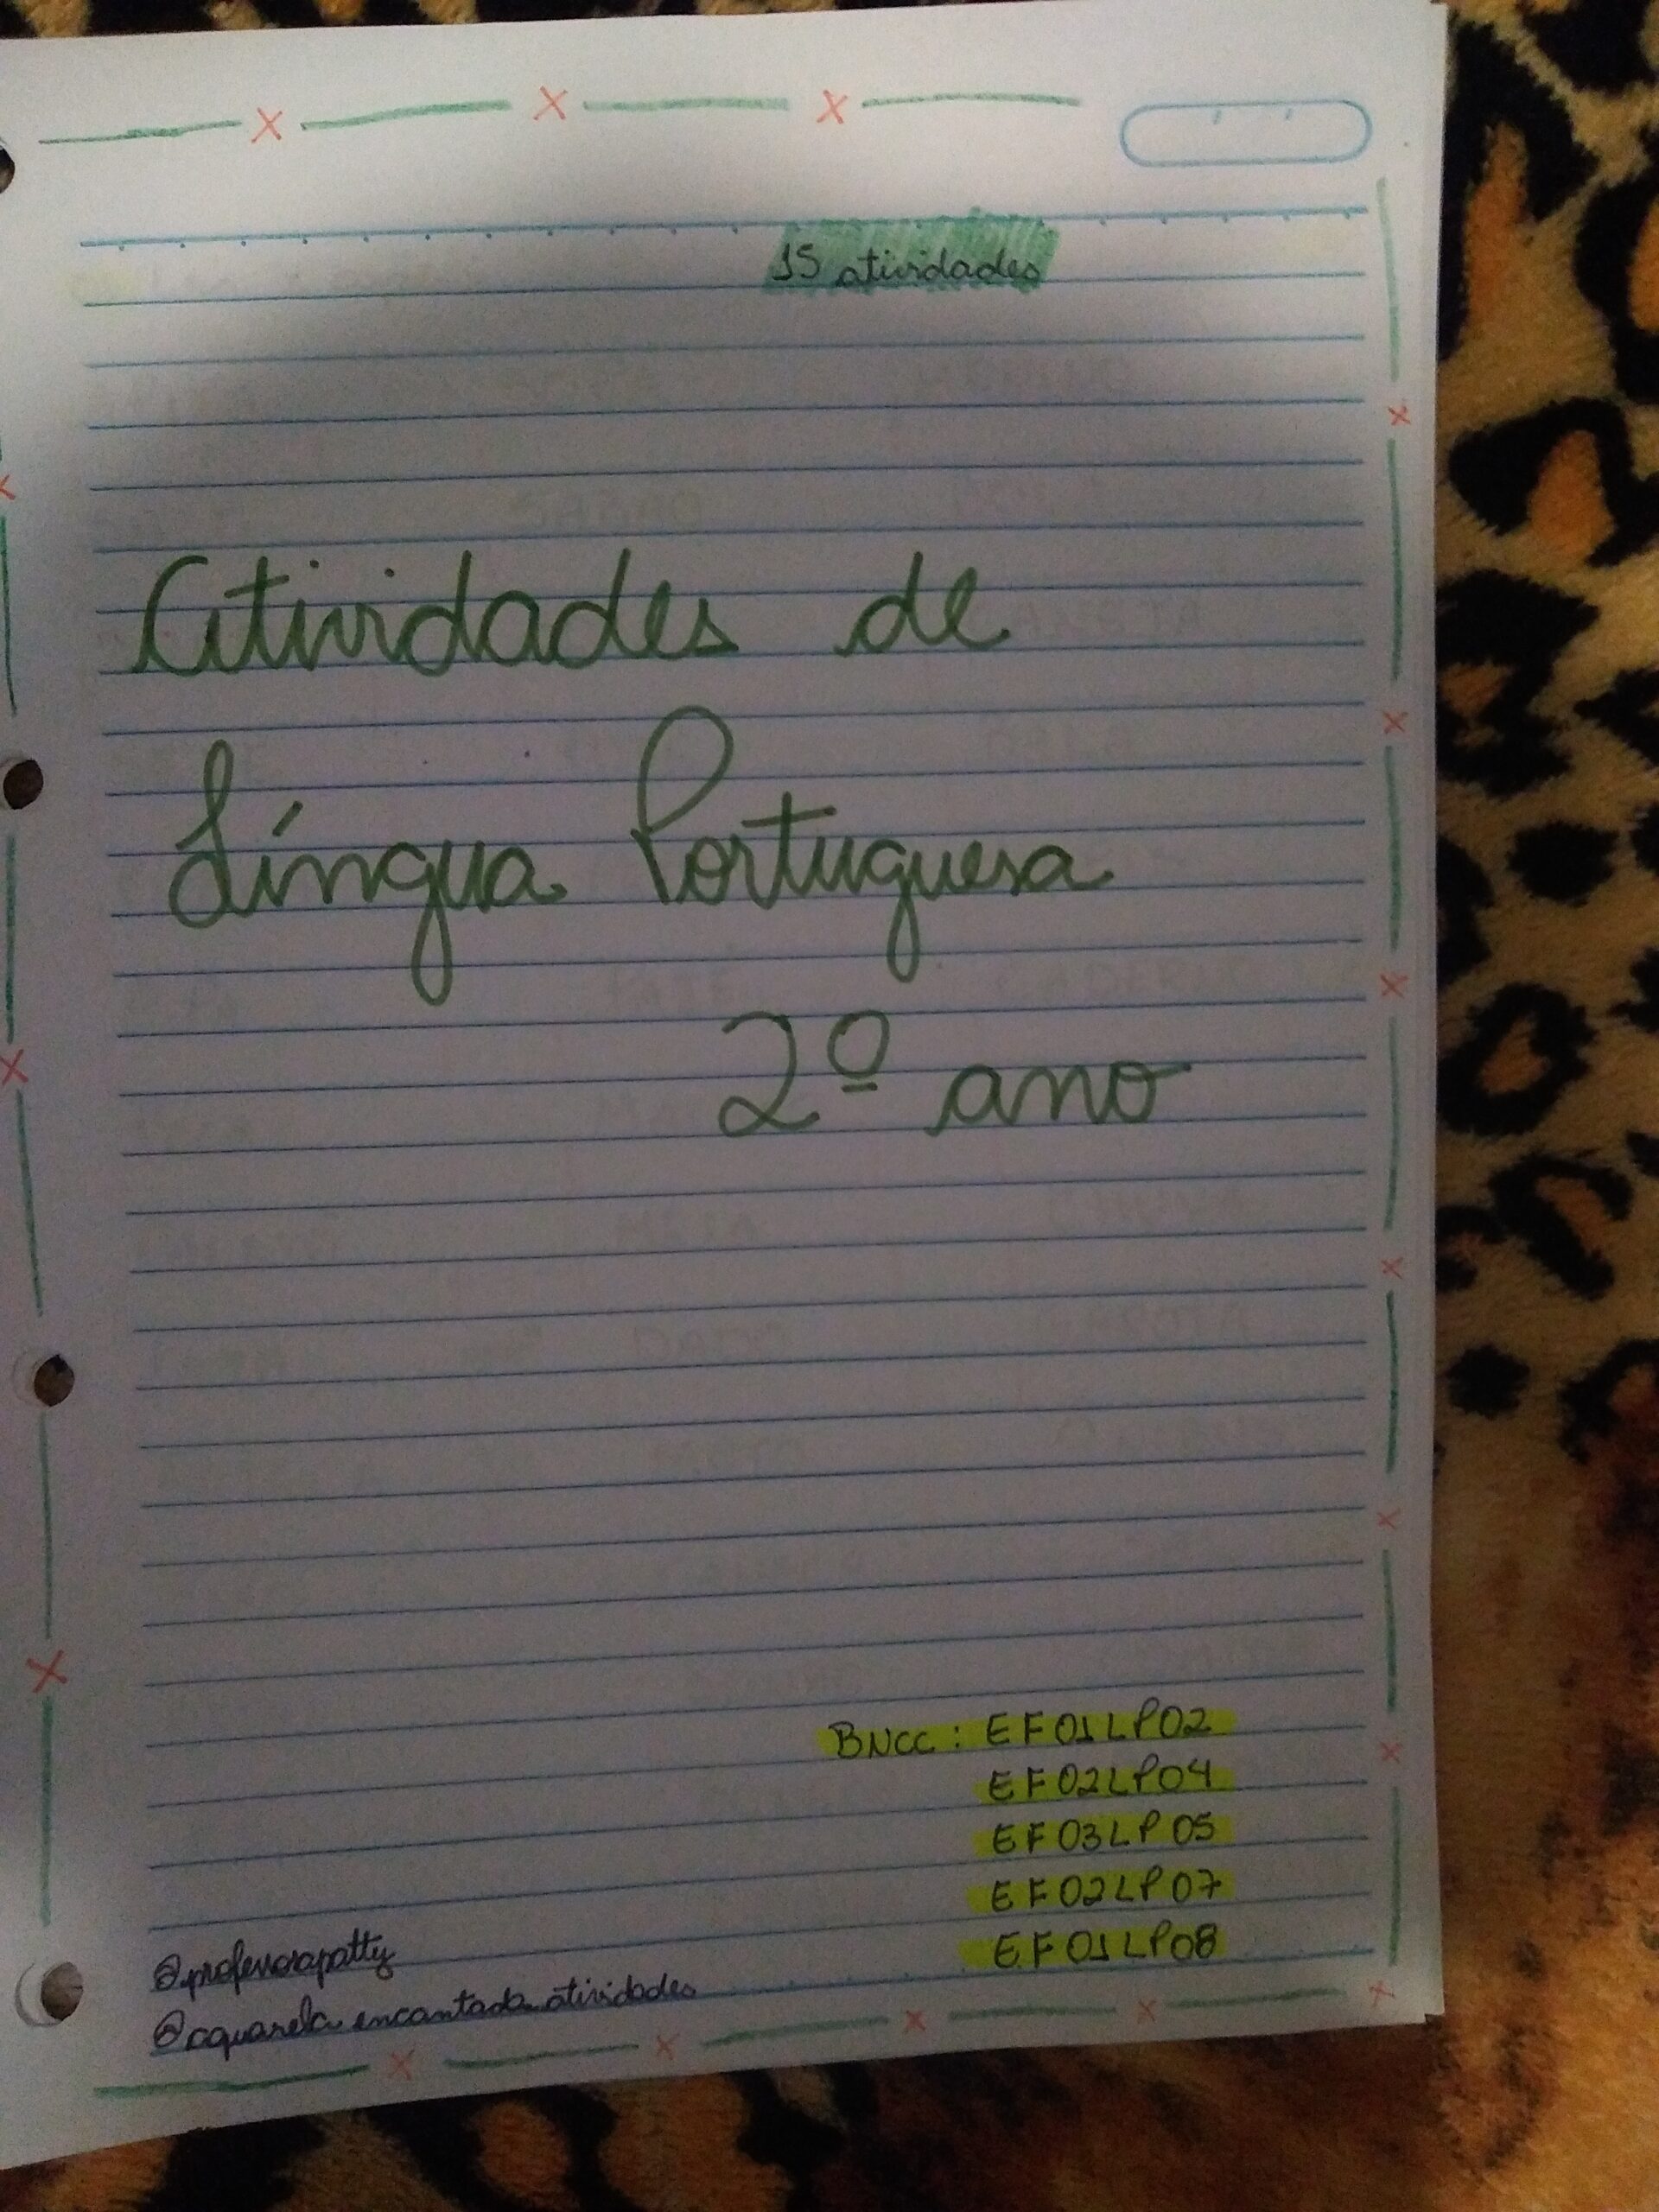 15 atividades
Atividades de
Língua Portuguesa
2º ano
BNCC: EF01LP02
EF02LP04
EF03LP05
EF02LP07
EF01LP08
@professorapatty
@aquarela.encantada.atividades